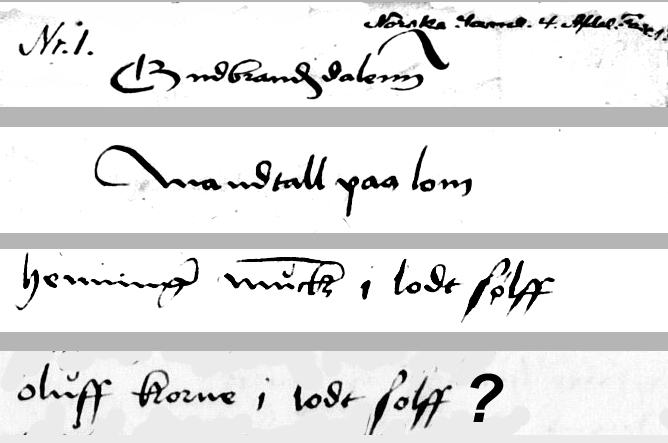 Nr. 1. Norska Saml. 4. Afdel. Fasc. 1.
Gudbrandzdalenn
Mandtall paa lom
henning muck i lodt sølff
oluff korne i lodt sølff ?